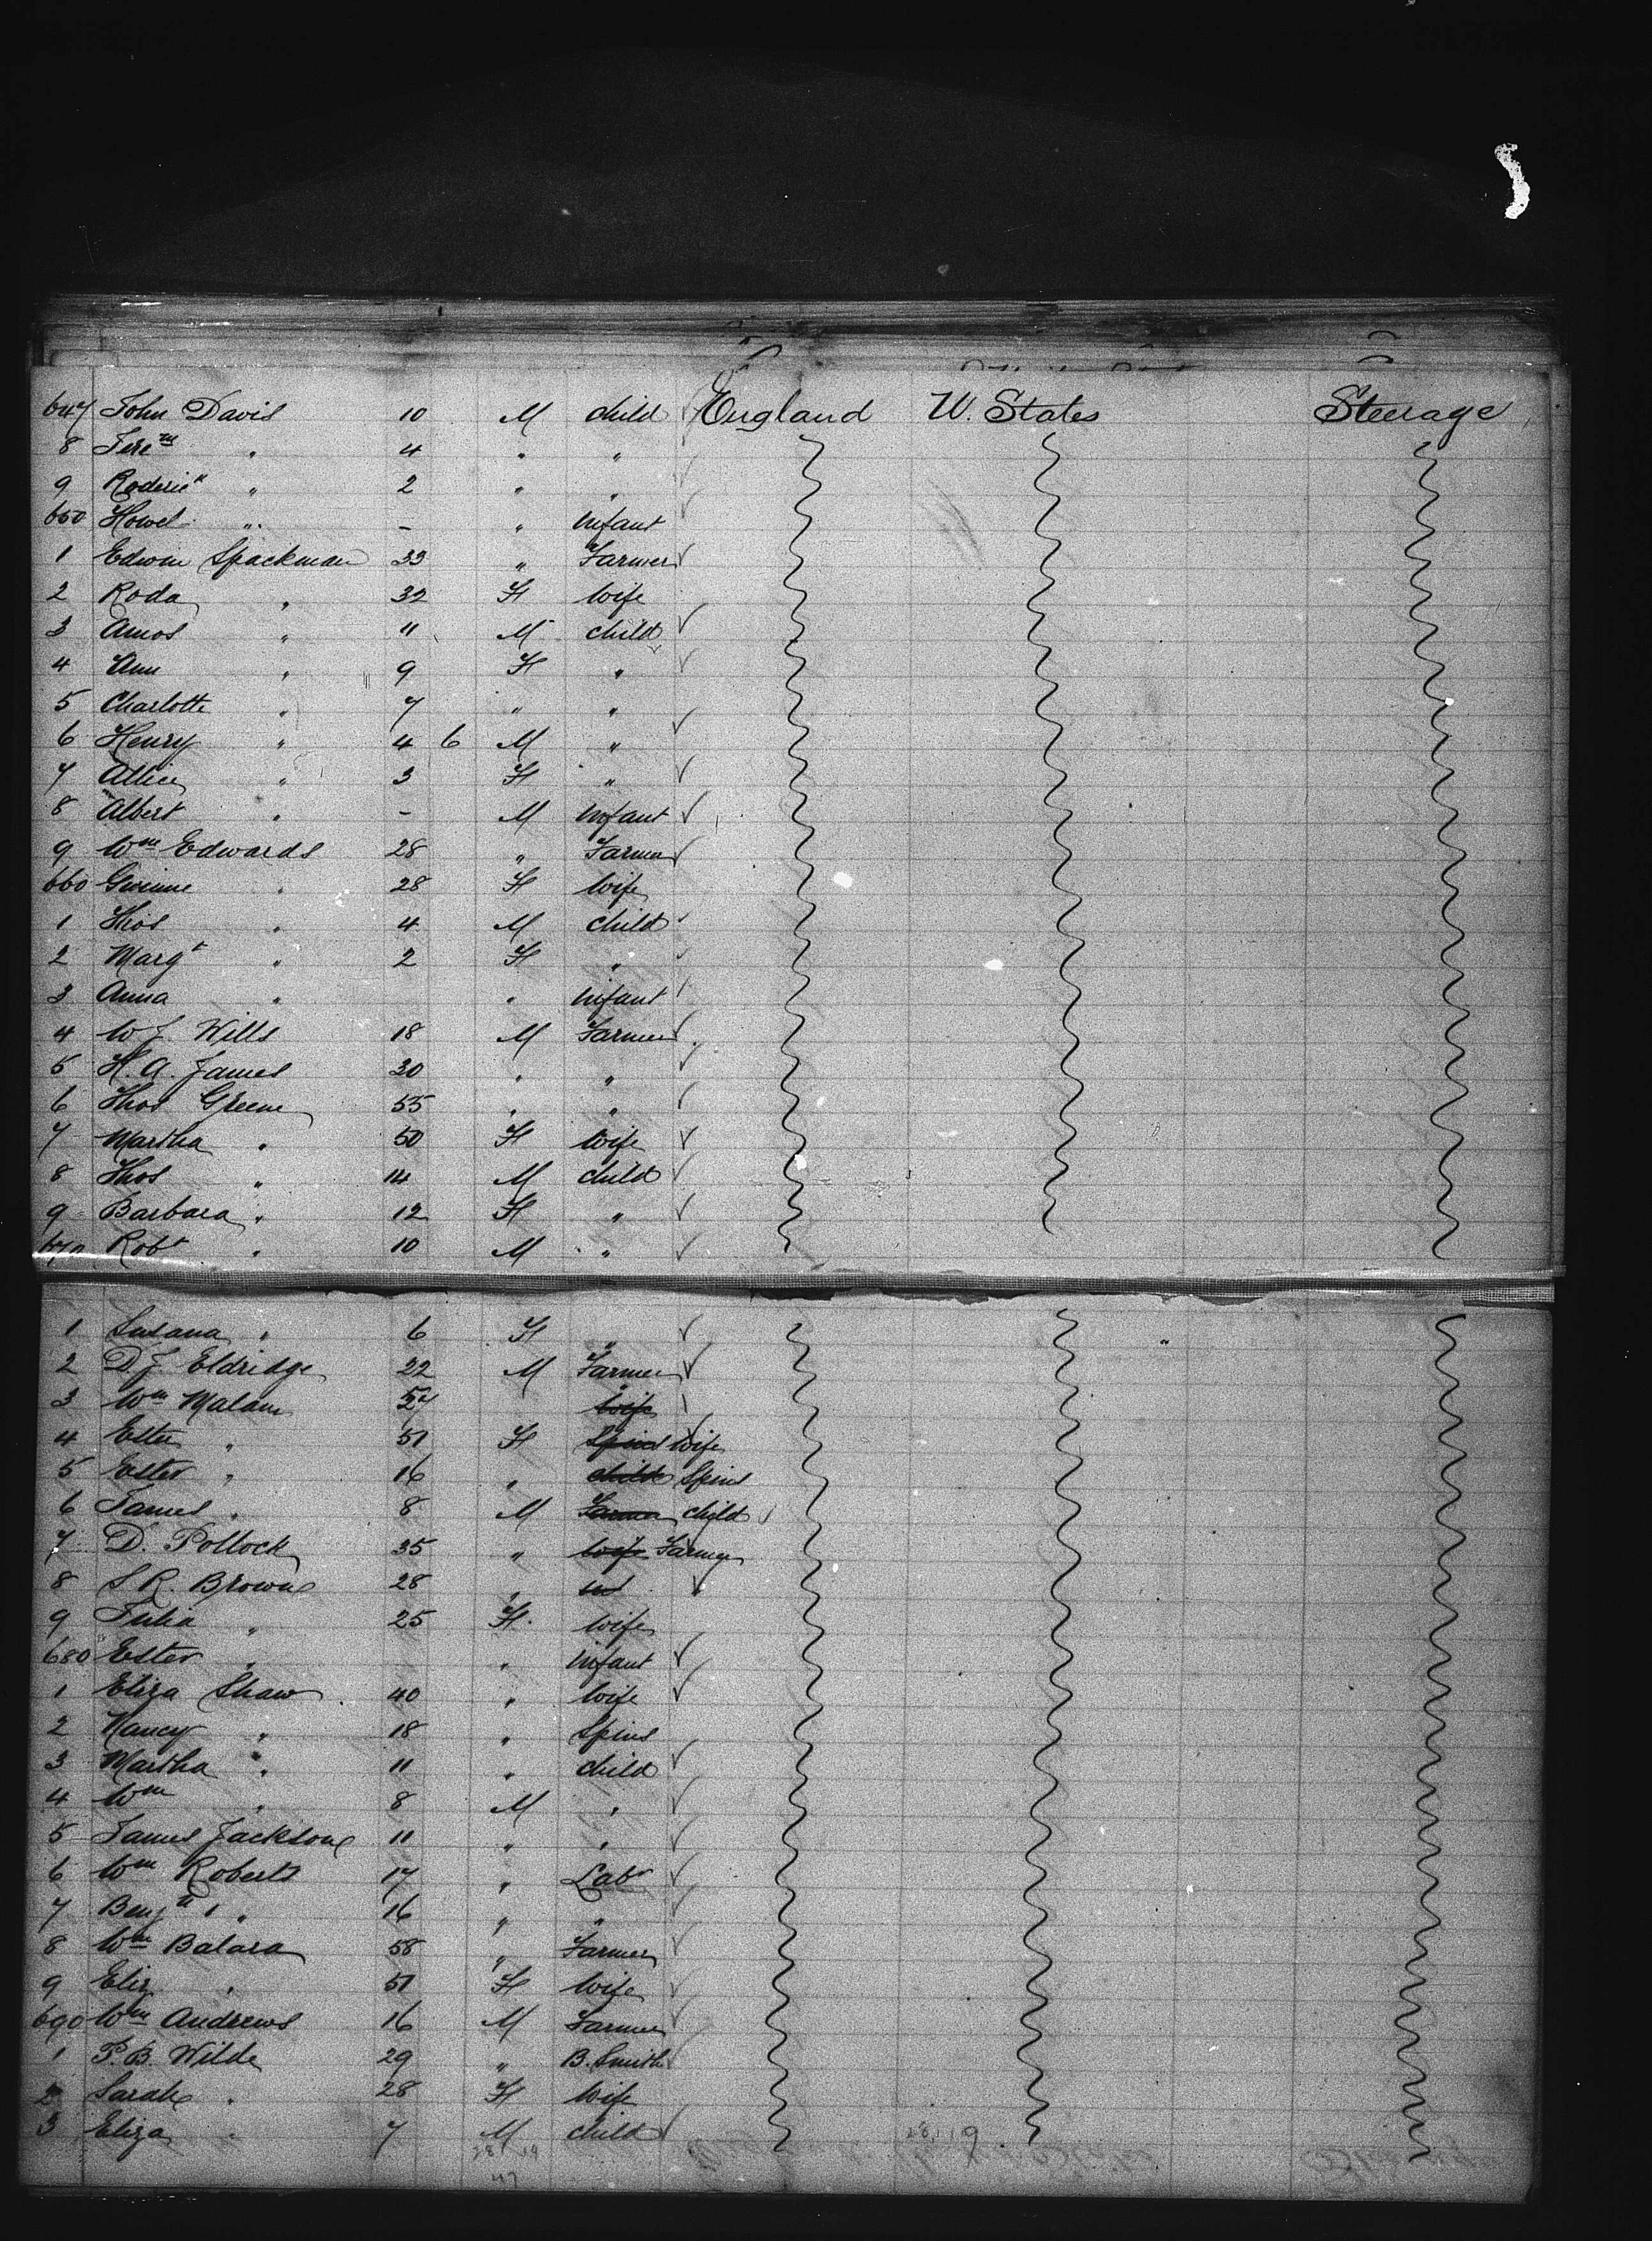 647 John Davis 10 M child England U. States Steerage
8 Jerem " 4 " "
9 Roderick " 2 " "
650 Howel " - " Infant
1 Edwin Spackman 33 " Farmer
2 Roda " 32 F wife
3 Amos " 11 M child
4 Ann " 9 F "
5 Charlotte " 7 " "
6 Henry " 4 6 M "
7 Allice " 3 F "
8 Albert " - M Infant
9 Wm Edwards 28 " Farmer
660 Gwinne " 28 F Wife
1 Thos " 4 M child
2 Margt " 2 F "
3 Anna " " infant
4 W J. Wills 18 M Farmer
5 H. A. James 30 " "
6 Thos Greene 55 " "
7 Martha " 50 F Wife
8 Thos " 14 M child
9 Barbara " 12 F "
670 Robt " 10 M "
1 Susana " 6 F "
2 D. J. Eldridge 22 M Farmer
3 Wm Malam 57 " wife
4 Ester " 51 F Spins Wife
5 Ester " 16 " child Spins
6 James " 8 M Farmer child
7 D. Pollock 35 " wife Farmer
8 S R. Browne 28 "
9 Julia " 25 F. wife
680 Ester " " Infant
1 Eliza Shaw 40 " Wife
2 Nancy " 18 " Spins
3 Martha " 11 " child
4 Wm " 8 M "
5 James Jackson 11 " "
6 Wm Roberts 17 " Labr
7 Benjn " 16 " "
8 Wm Balara 58 " Farmer
9 Eliz " 51 F Wife
690 Wm Andrews 16 M Farmer
1 P. B. Wilde 29 " B. Smith
2 Sarah " 28 F Wife
3 Eliza " 7 M child
28 19
47